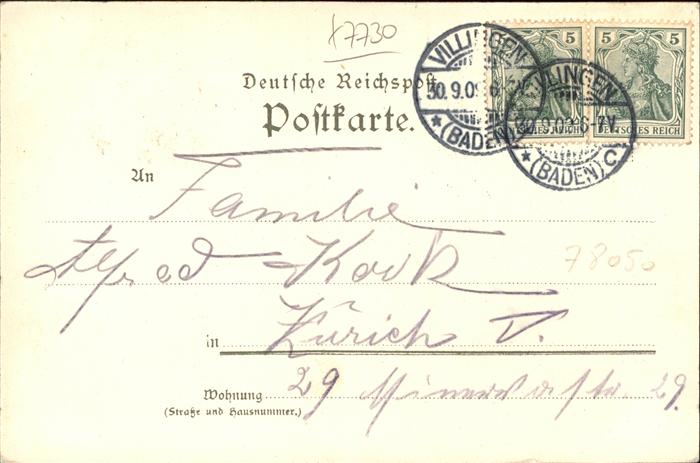 x7730
VILLINGEN
30.9.09.6-7V.
★(BADEN)
VILLINGEN
30.9.09.6-7V.
★(BADEN)C
5 5
DEUTSCHES REICH
Deutsche Reichspost
Postkarte.
An
Familie
Alfred Kock
78050
in Zürich V.
Wohnung 29 Minervastr. 29.
(Straße und Hausnummer.)